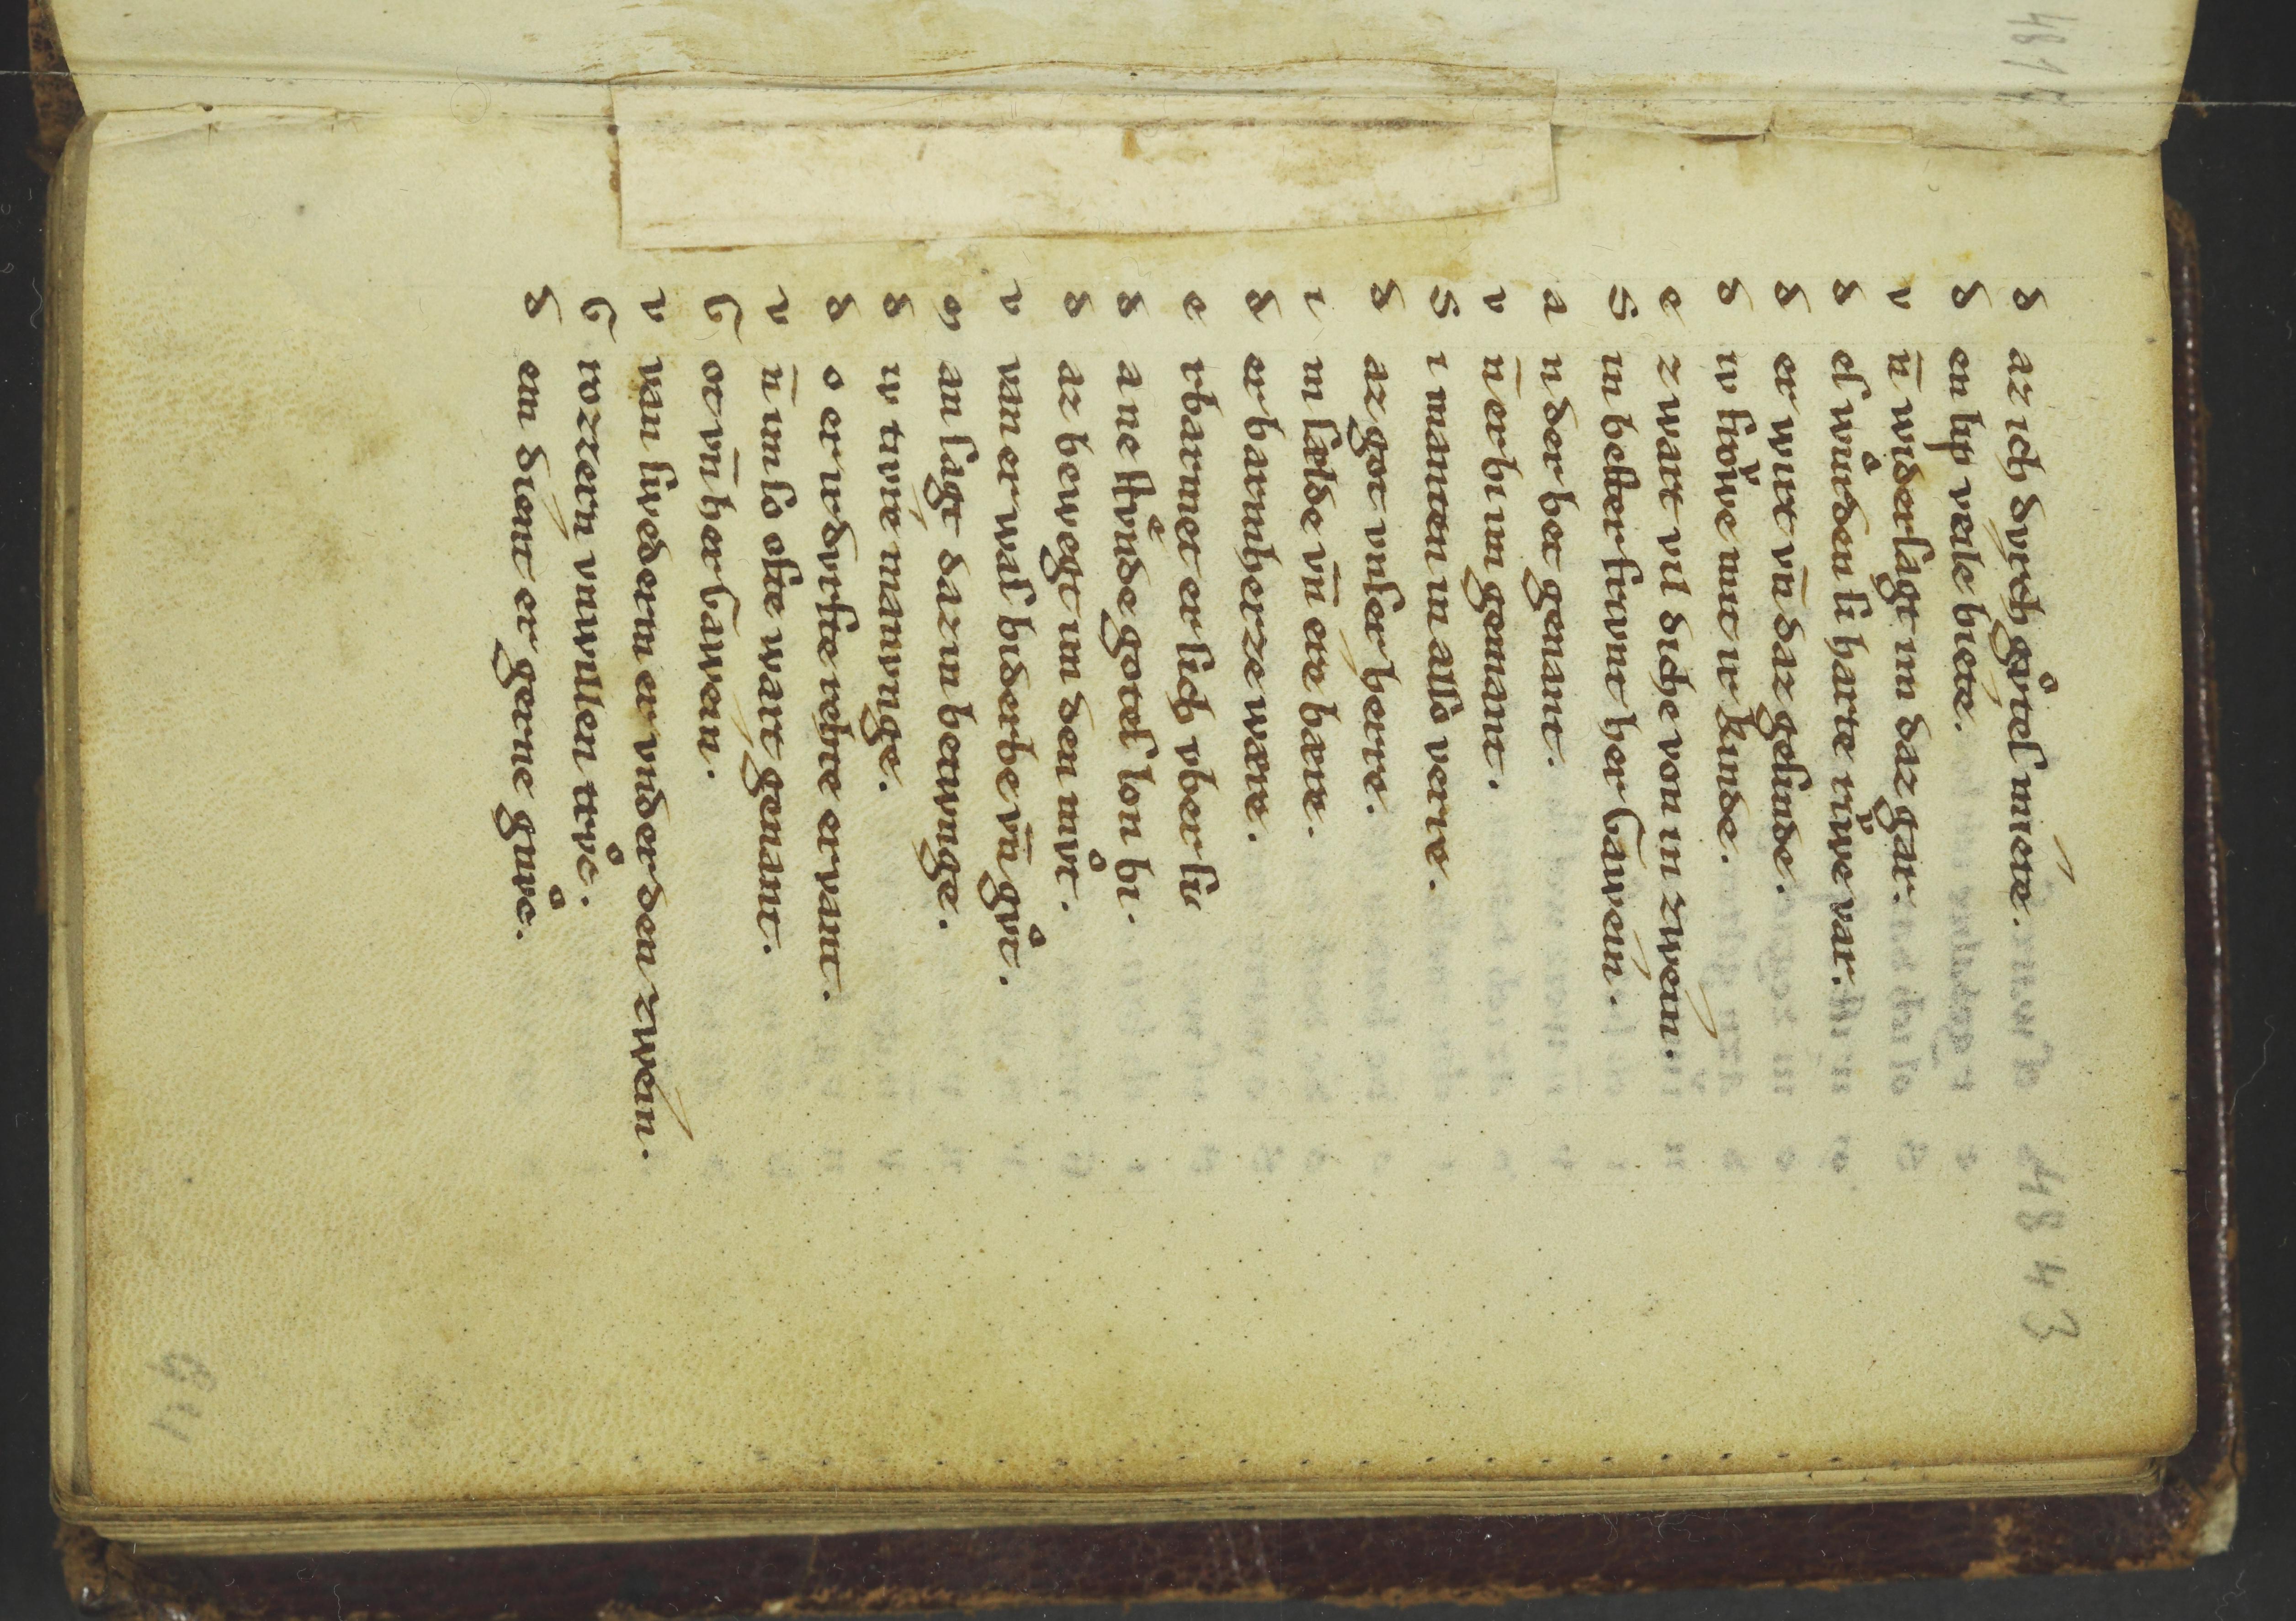 d az ich dvrch gůtes miete.
d en lip veile biete.
v n̄ widersagt im daz gar.
d es wůrden si harte riͮwe var.
d er wirt vn̄ daz gesinde.
d iv frowͮe mit ir kinde.
e z wart vil diche von in zwein.
S in bester frivnt her Gawein.
a n der bet genant.
v n̄ er bi im gemant.
S i manten in also verre.
d az got vnser herre.
i m sælde vn̄ ere bære.
d er barmherze wære.
e rbarmet er sich vber si
d a ne stvͤnde gotes lon bi.
d az bewegt im den mv̊t.
v van er was biderbe vn̄ gv̊t.
m an sagt daz in betwnge.
d iv tivre manvnge.
d o er ir dvrfte rehte ervant.
v n̄ im so ofte wart genant.
G ot vn̄ her Gawein.
v van swederm er vnder den zwein.
G rozzern vnwillen trv̊c.
d em dient er gerne gnv̊c.
4843